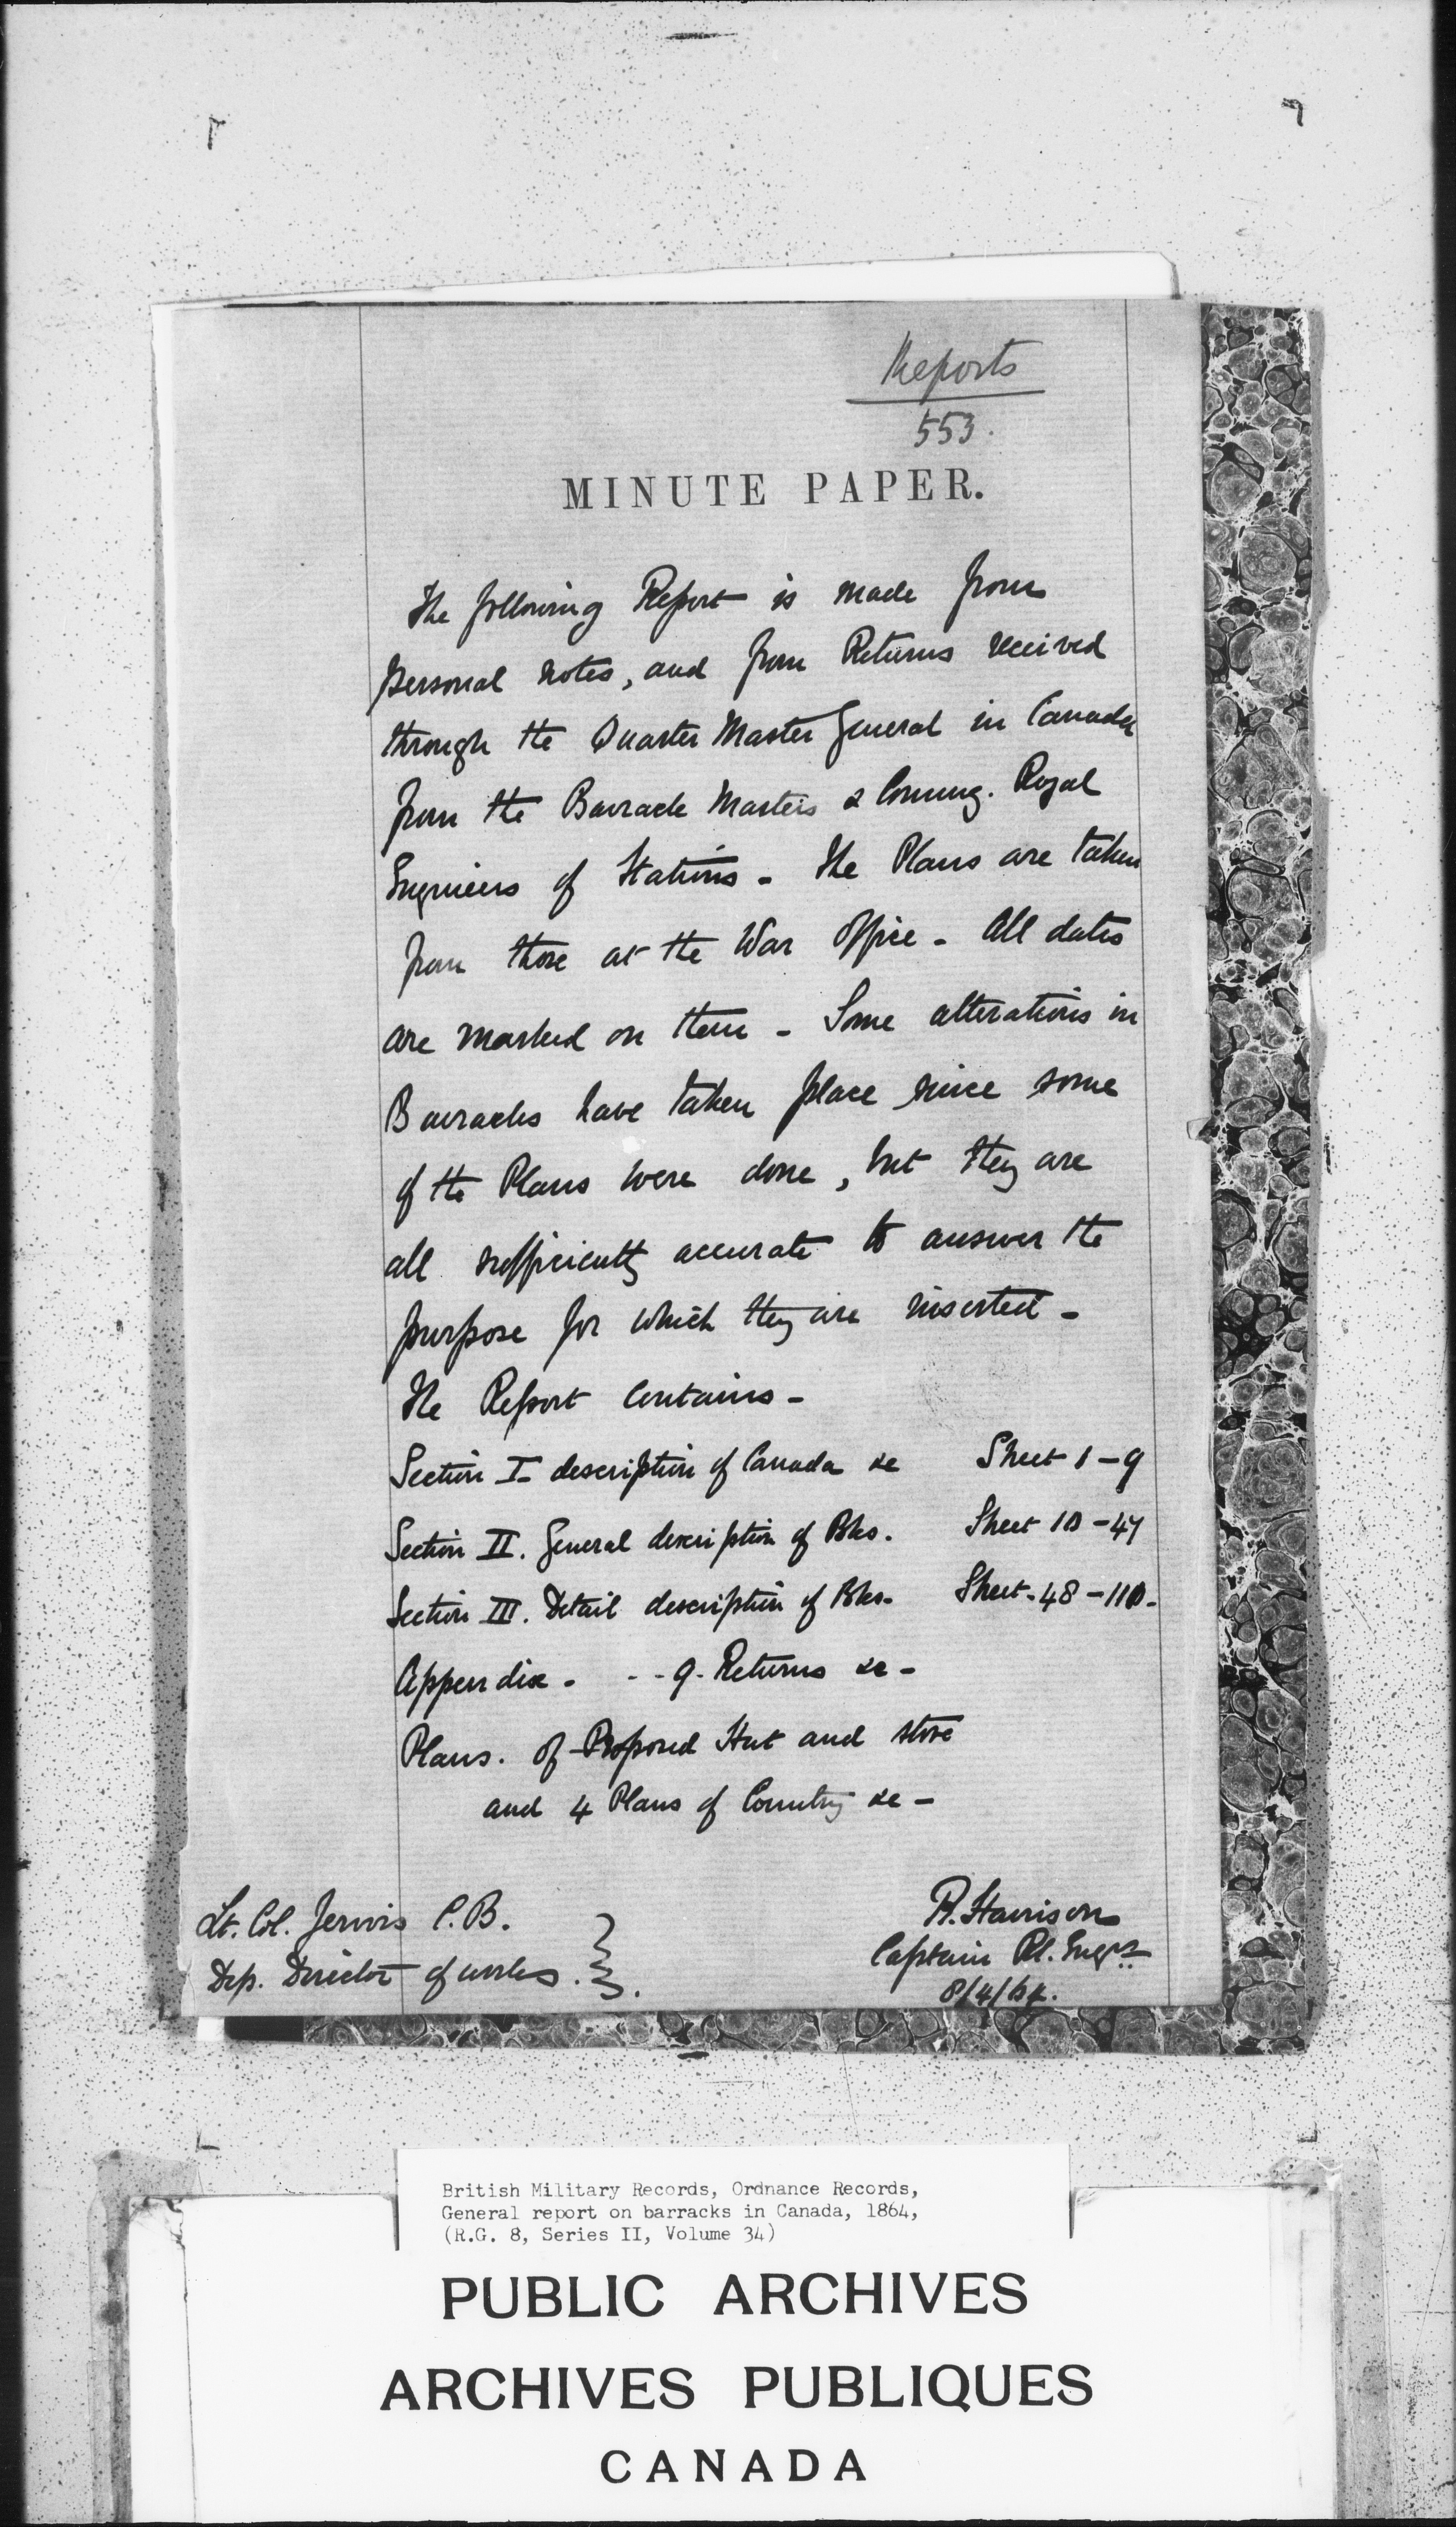 Reports
553.
MINUTE PAPER.
The following Report is made from
personal notes, and from Returns received
through the Quarter Master General in Canada
from the Barrack Masters & Commg. Royal
Engineers of Stations - The Plans are taken
from those at the War Office - All dates
are marked on them - Some alterations in
Barracks have taken place since some
of the Plans were done, but they are
all sufficiently accurate to answer the
purpose for which they are inserted -
The Report contains -
Section I description of Canada &c Sheet 1-9
Section II. General description of Bks. Sheet 10-47
Section III. Detail description of Bks. Sheet 48-110.
Appendix. - - 9. Returns &c -
Plans. of Proposed Hut and stove
and 4 Plans of Country &c -
Lt. Col. Jervois C.B.
Dep. Director of works.
R. Harrison
Captain Rl. Engrs.
8/4/64.
British Military Records, Ordnance Records,
General report on barracks in Canada, 1864,
(R.G. 8, Series II, Volume 34)
PUBLIC ARCHIVES
ARCHIVES PUBLIQUES
CANADA